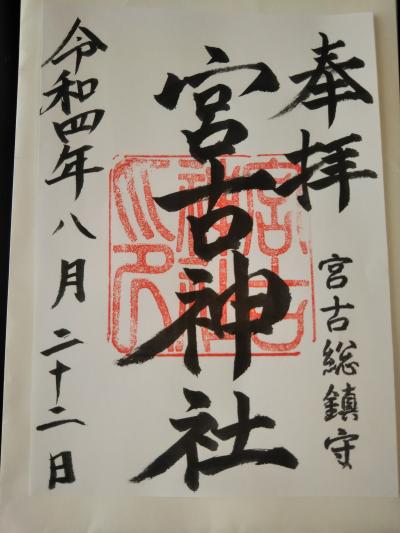 奉拝
宮古総鎮守
宮古神社
令和四年八月二十二日